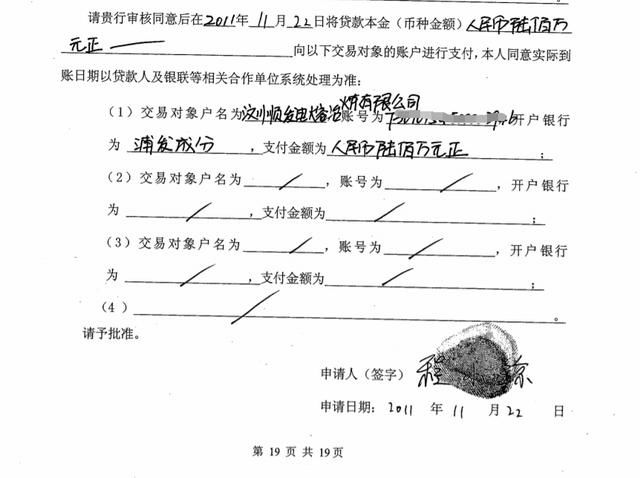 请贵行审核同意后在2011年11月22日将贷款本金（币种金额）人民币陆佰万
元正
向以下交易对象的账户进行支付，本人同意实际到
账日期以贷款人及银联等相关合作单位系统处理为准：
（1）交易对象户名为汶川顺发电熔冶炼有限公司 账号为 开户银行
为 浦发成分 ，支付金额为 人民币陆佰万元正 ；
（2）交易对象户名为 / ，账号为 / ，开户银行
为 / ，支付金额为 / ；
（3）交易对象户名为 / ，账号为 / ，开户银行
为 / ，支付金额为 / ；
（4） / 。
请予批准。
申请人（签字） 程
申请日期：2011 年 11 月 22 日
第 19 页 共 19 页